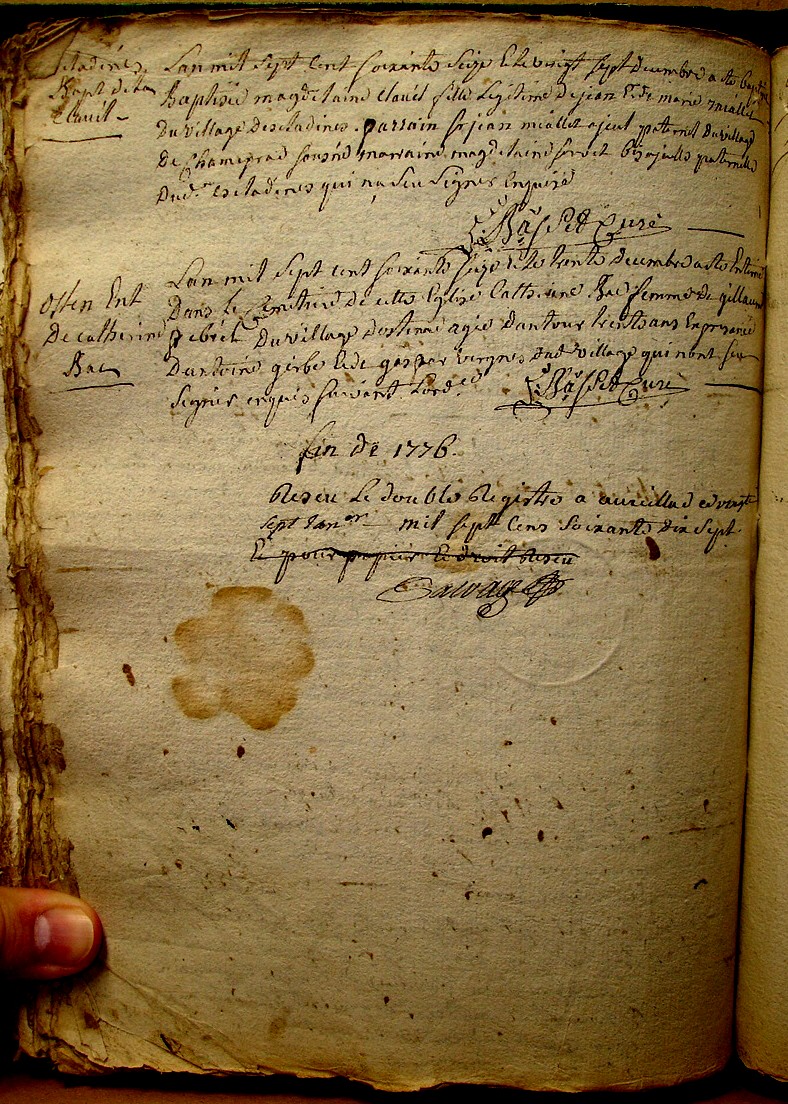 Bapt de
Clavil
Lan mil sept cent soixante seize et le vingt sept decembre a ete
Baptisée magdelaine Clavil fille legitime de jean et de marie miallet
du village descladines. parrain sr jean miallet ajeul paternel du village
De marraine magdelaine bisajeulle paternelle
Dud. escladines qui na seu signer enquise
Basset Curé
Osten Ent
De catherine
Bac
Lan mil sept cent soixante seize et le trente decembre a ete Enterrée
Dans le Cemitiere de cette Eglise Catherine Bac femme de gillaume
du village destenne agée dantour trente ans En presance
Dantoine gerbe et de gaspar vergnes dud village qui nont seu
signer enquis suivant Lord.ce
Basset Curé
fin de 1776.
Reseu Le double Registre a aureillac ce vingt
sept Janer mil sept cens soixante dix sept
Et pour papier et droit Reseu
Sauvage